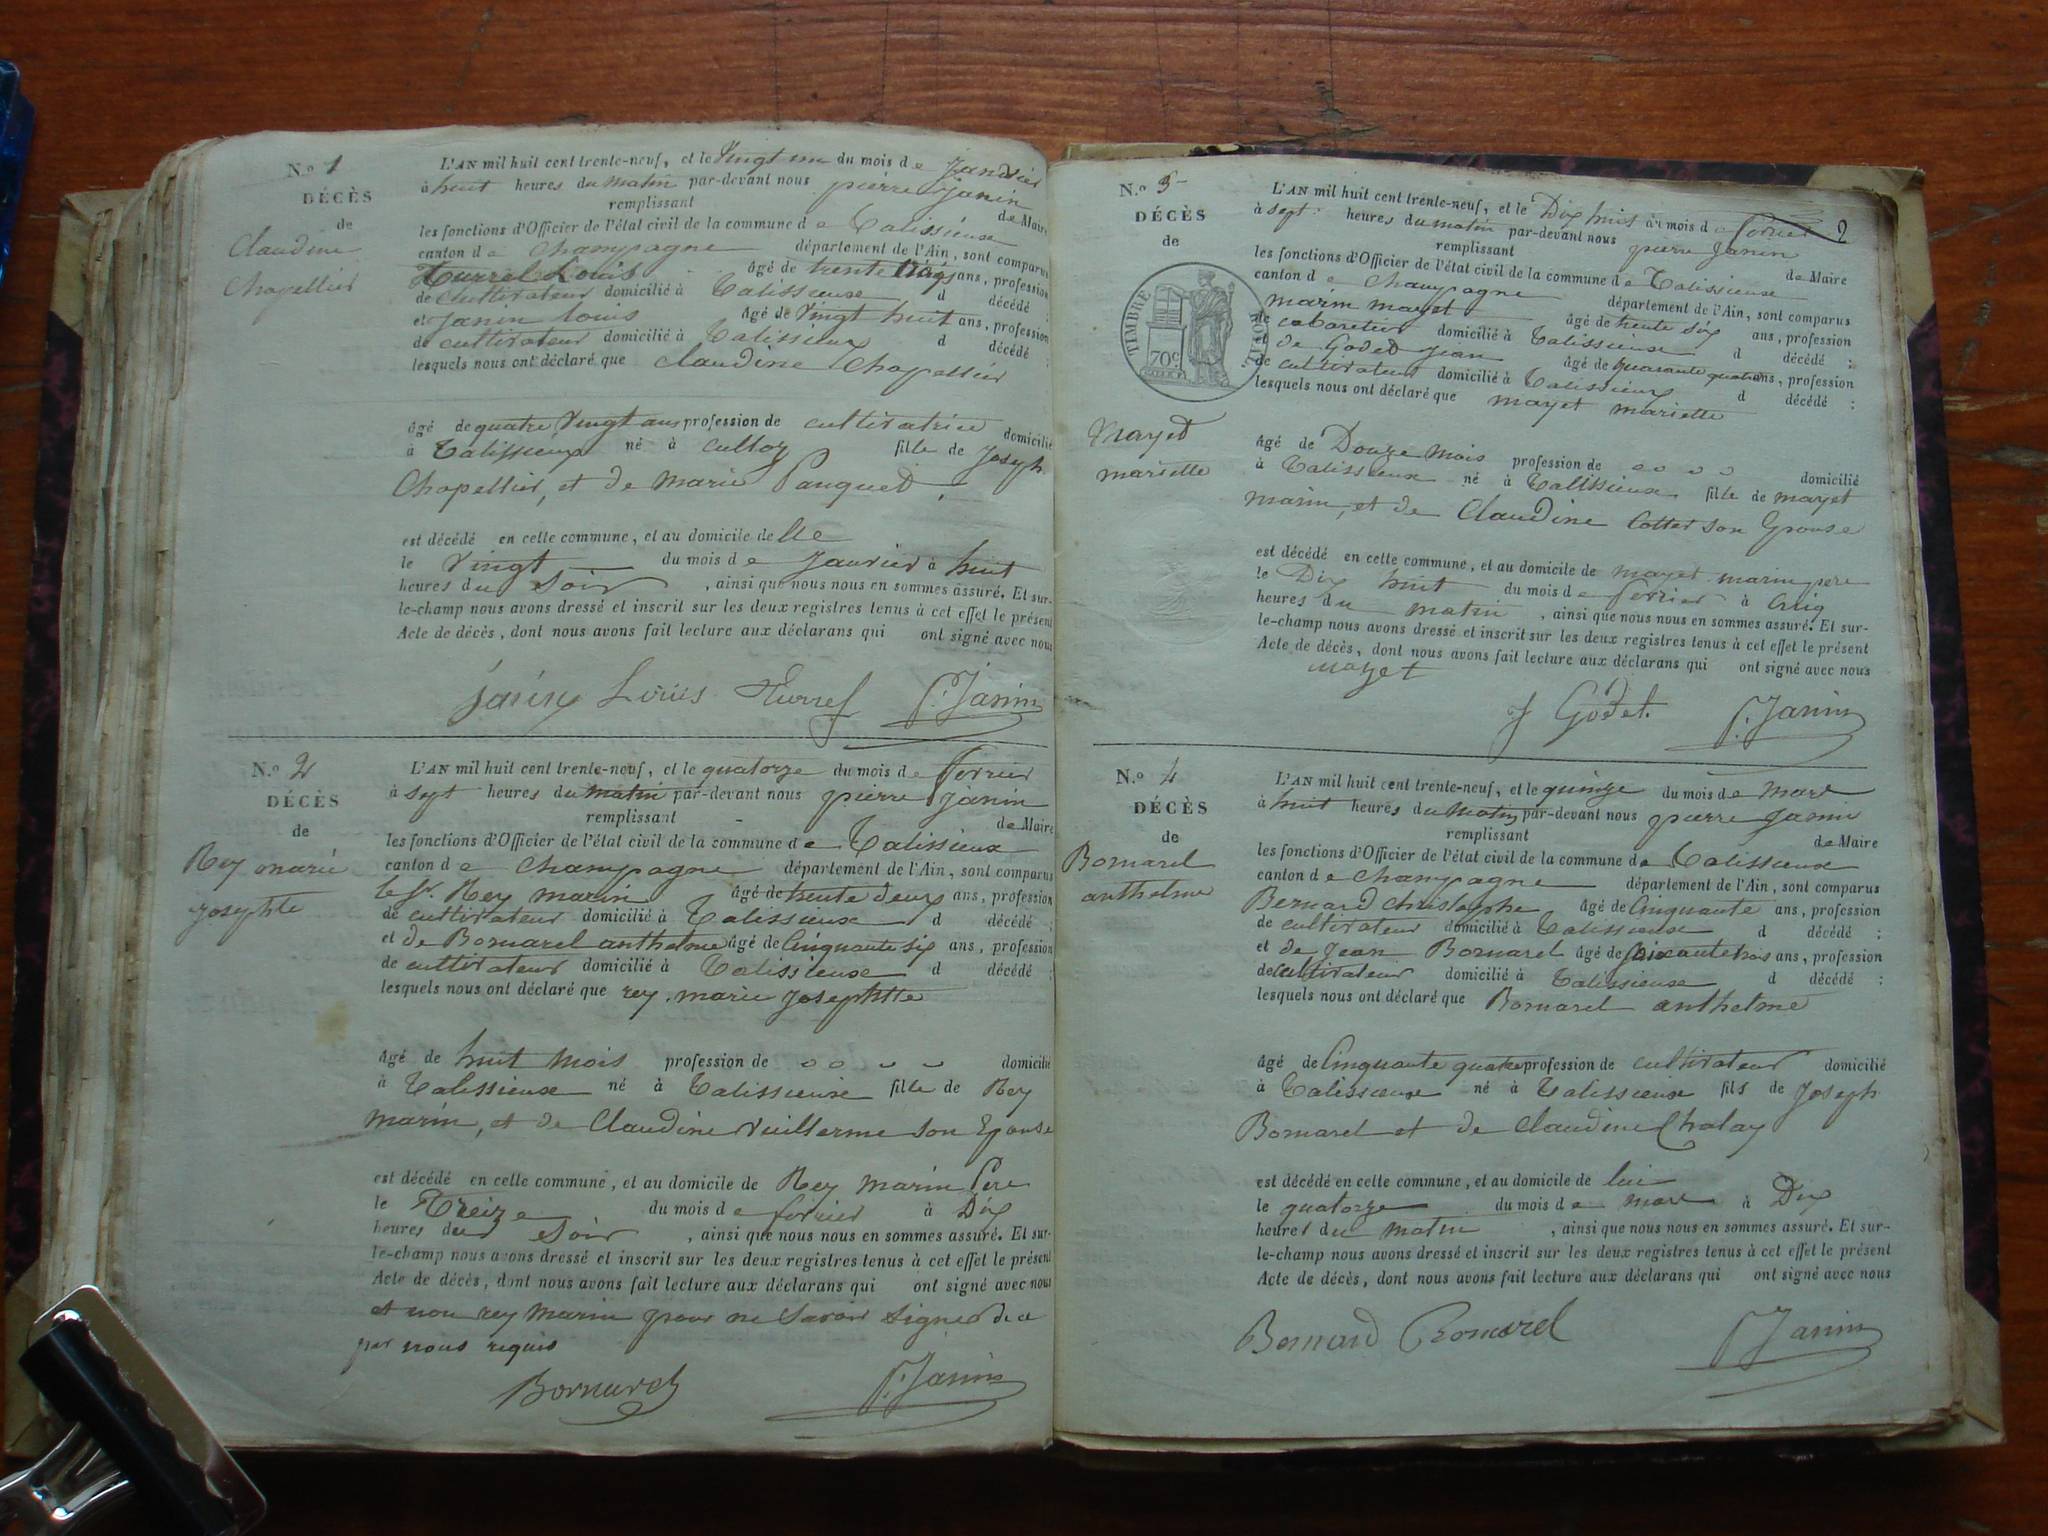 N.o 1
DÉCÈS
de
Claudine
Chapellier
L'AN mil huit cent trente-neuf, et le Vingt un du mois de Janvier
à huit heures du matin par-devant nous pierre janin
remplissant de Maire
les fonctions d'Officier de l'état civil de la commune de Talissieux
canton de Champagne département de l'Ain, sont comparus
Hurrel Louis âgé de trente ans, profession
de cultivateur domicilié à Talissieux d décédé ;
et Janin Louis âgé de Vingt huit ans, profession
de cultivateur domicilié à Talissieux d décédé
lesquels nous ont déclaré que claudine Chapellier
âgé de quatre Vingt ans profession de cultivatrice domicilié
à Talissieux né à culloz fille de Joseph
Chapellier, et de Marie Panquet.
est décédé en cette commune, et au domicile de lle
le Vingt du mois de Janvier à huit
heures du soir, ainsi que nous nous en sommes assuré. Et sur-
le-champ nous avons dressé et inscrit sur les deux registres tenus à cet effet le présent
Acte de décès, dont nous avons fait lecture aux déclarans qui ont signé avec nous
Janin Louis Hurrel P. Janin
N.o 2
DÉCÈS
de
Rey marie
josephte
L'AN mil huit cent trente-neuf, et le quatorze du mois de fevrier
à sept heures du matin par-devant nous pierre janin
remplissant de Maire
les fonctions d'Officier de l'état civil de la commune de Talissieux
canton de Champagne département de l'Ain, sont comparus
le Sr. Rey marin âgé de trente deux ans, profession
de cultivateur domicilié à Talissieux d décédé ;
et de Bornarel anthelme âgé de Cinquante six ans, profession
de cultivateur domicilié à Talissieux d décédé ;
lesquels nous ont déclaré que rey marie Josephtte
âgé de huit mois profession de domicilié
à Talissieux né à Talissieux fille de Rey
marin, et de Claudine Vuillerme son Epouse
est décédé en cette commune, et au domicile de Rey marin Pere
le Treize du mois de fevrier à Dix
heures du soir, ainsi que nous nous en sommes assuré. Et sur-
le-champ nous avons dressé et inscrit sur les deux registres tenus à cet effet le présent
Acte de décès, dont nous avons fait lecture aux déclarans qui ont signé avec nous
et non rey marin pour ne savoir signer de ce
par nous requis
Bornarel P. Janin
2
N.o 3
DÉCÈS
de
TIMBRE ROYAL
70c
Mayet
mariette
L'AN mil huit cent trente-neuf, et le Dix huit du mois de fevrier
à sept heures du matin par-devant nous pierre Janin
remplissant de Maire
les fonctions d'Officier de l'état civil de la commune de Talissieux
canton de Champagne département de l'Ain, sont comparus
marin mayet âgé de trente six ans, profession
de cabaretier domicilié à Talissieux d décédé ;
de Godet Jean âgé de quarante quatre ans, profession
de cultivateur domicilié à Talissieux d décédé ;
lesquels nous ont déclaré que mayet mariette
âgé de Douze mois profession de domicilié
à Talissieux né à Talissieux fille de mayet
marin, et de Claudine Cottet son Epouse
est décédé en cette commune, et au domicile de mayet marin pere
le Dix huit du mois de fevrier à Cinq
heures du matin, ainsi que nous nous en sommes assuré. Et sur-
le-champ nous avons dressé et inscrit sur les deux registres tenus à cet effet le présent
Acte de décès, dont nous avons fait lecture aux déclarans qui ont signé avec nous
Mayet
J Godet. P. Janin
N.o 4
DÉCÈS
de
Bornarel
anthelme
L'AN mil huit cent trente-neuf, et le quinze du mois de mars
à huit heures du matin par-devant nous pierre Janin
remplissant de Maire
les fonctions d'Officier de l'état civil de la commune de Talissieux
canton de Champagne département de l'Ain, sont comparus
Bernard christophe âgé de Cinquante ans, profession
de cultivateur domicilié à Talissieux d décédé ;
et de Jean Bornarel âgé de soixante trois ans, profession
de cultivateur domicilié à Talissieux d décédé ;
lesquels nous ont déclaré que Bornarel anthelme
âgé de Cinquante quatre profession de cultivateur domicilié
à Talissieux né à Talissieux fils de Joseph
Bornarel et de Claudine Chalay
est décédé en cette commune, et au domicile de lui
le quatorze du mois de mars à Dix
heures du matin, ainsi que nous nous en sommes assuré. Et sur-
le-champ nous avons dressé et inscrit sur les deux registres tenus à cet effet le présent
Acte de décès, dont nous avons fait lecture aux déclarans qui ont signé avec nous
Bernard Bornarel P Janin